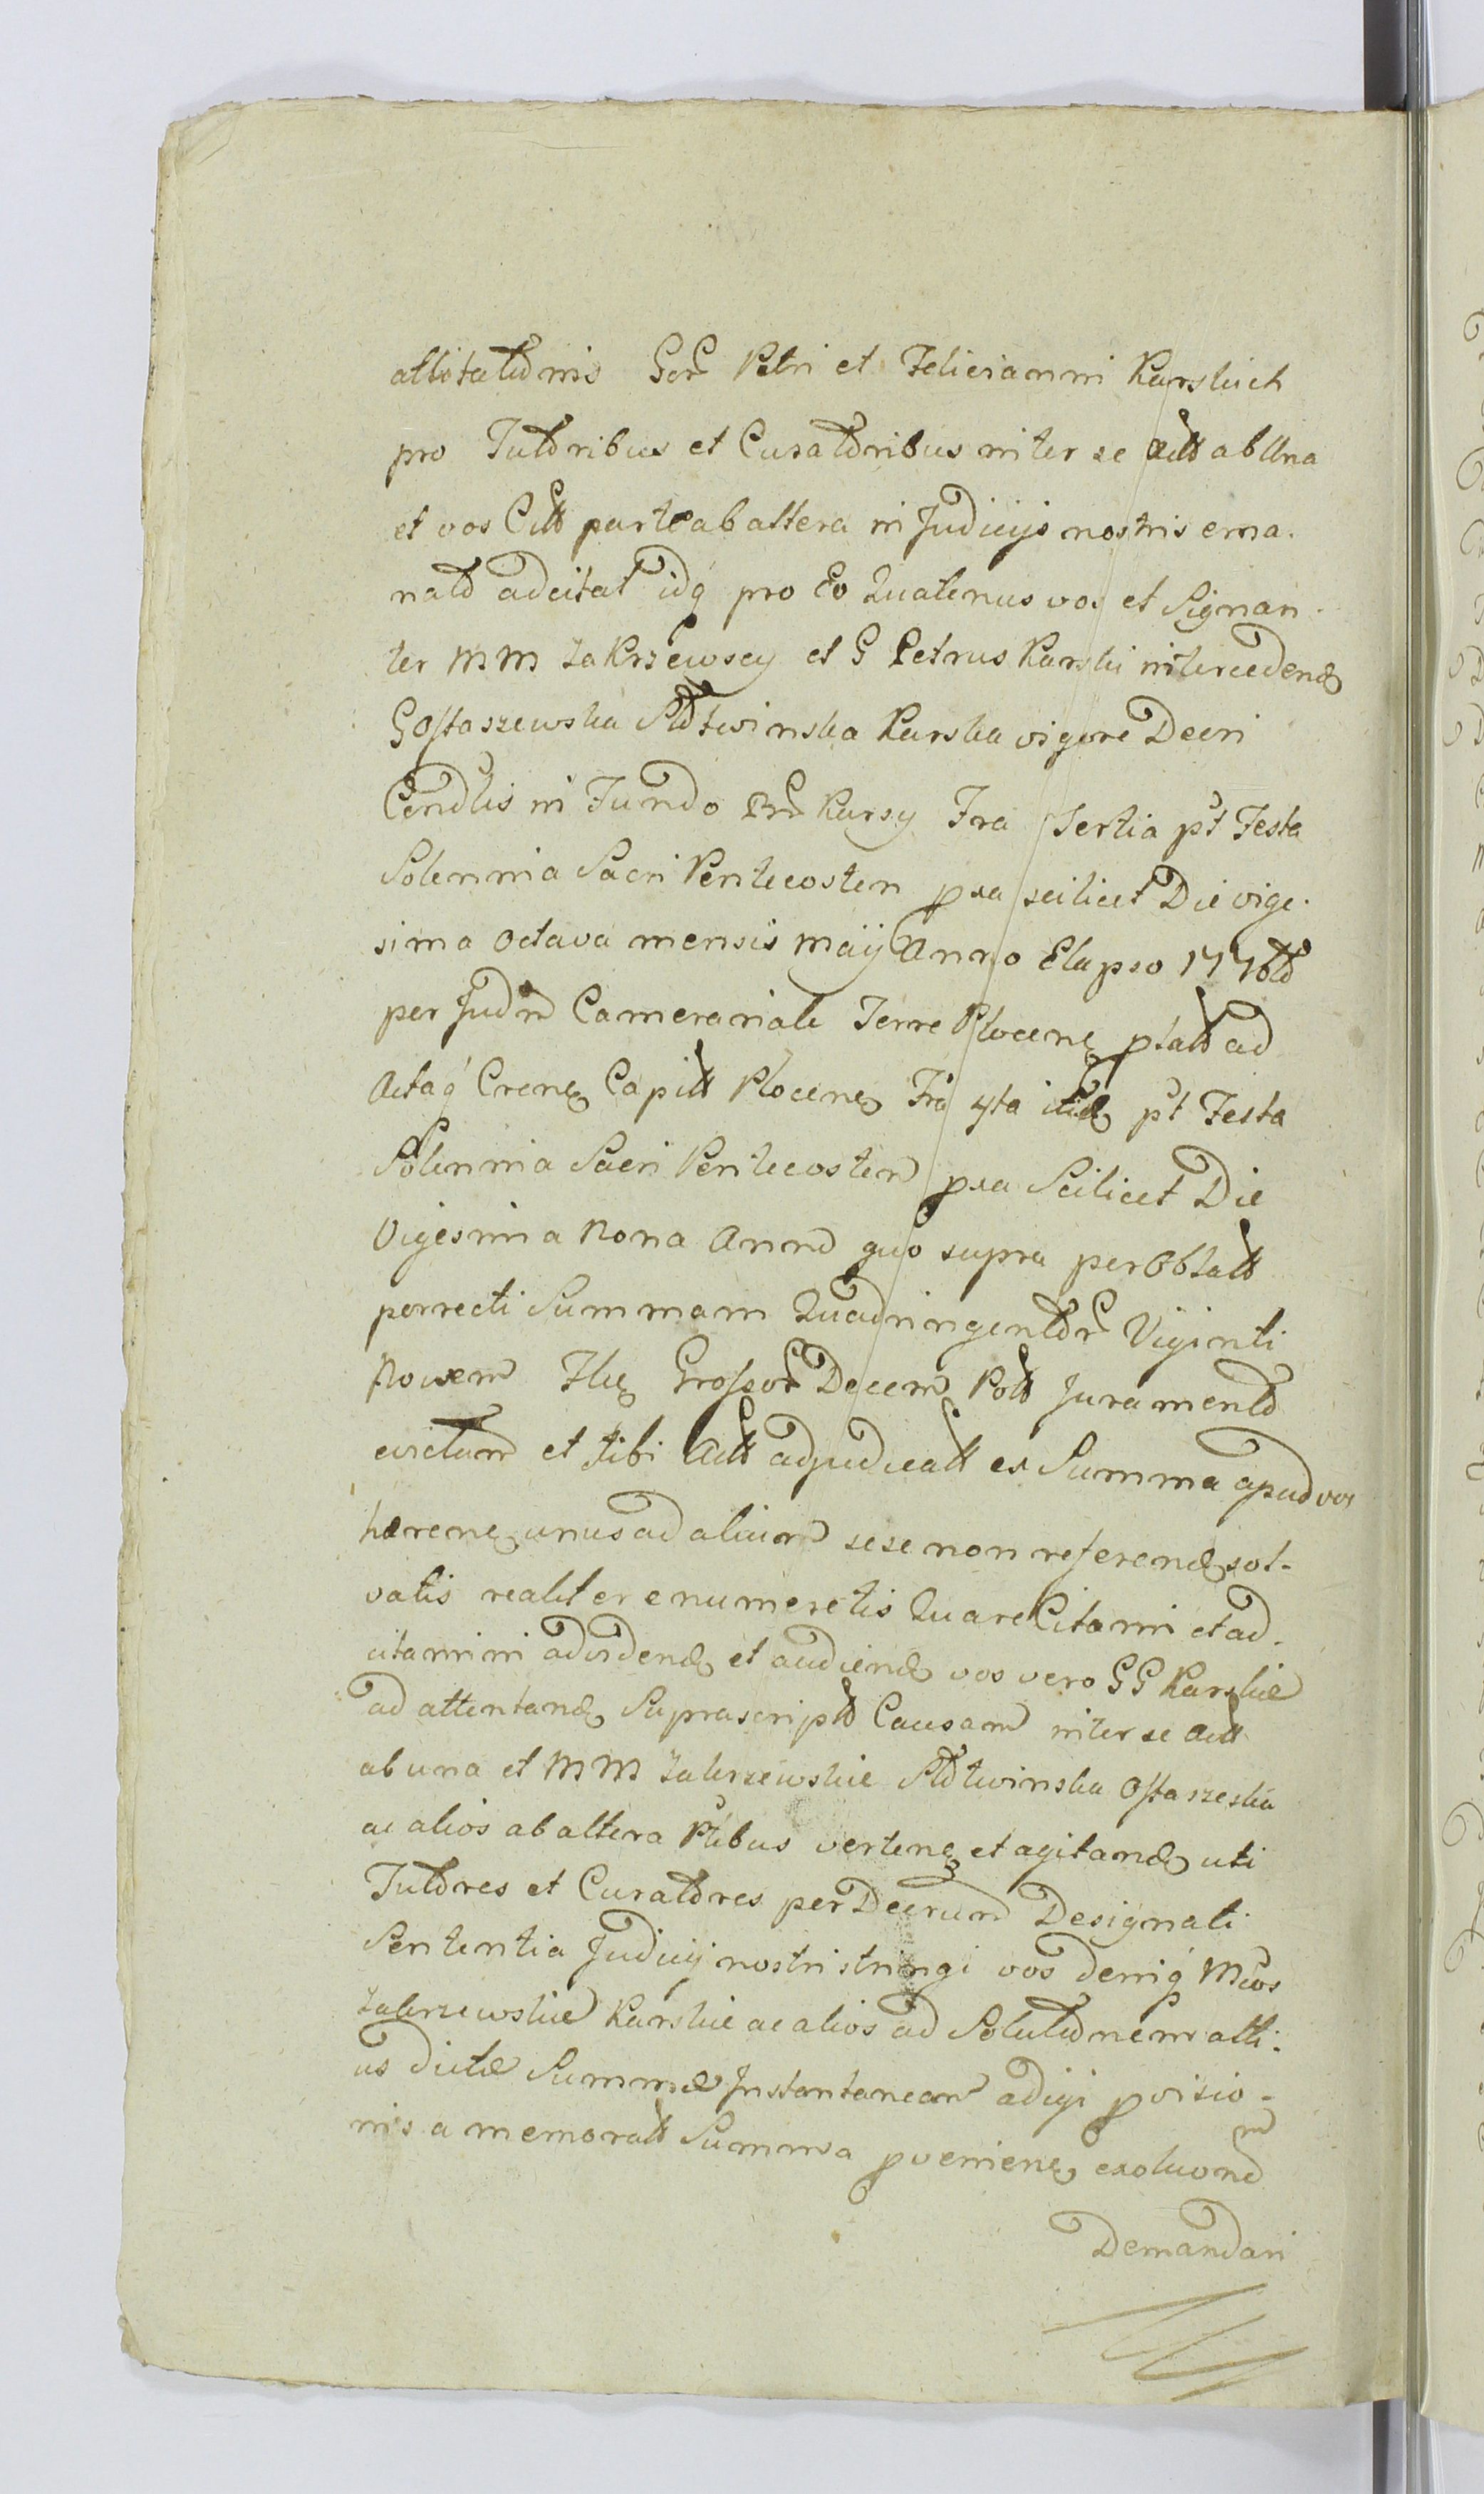 attitationis Gor Petri et Felicianni Karskich
pro Tutoribus et Curatoribus inter se Actt ab Una
et vos Citt parte ab altera in Judicijs nostris ema-
nato adcitat idq pro Eo Quatenus vos et Signan-
ter MM Zakrzewscy et G Petrus Karski intercedend
G Ostaszewska Karska vigore Decri
Condlis in Fundo Bnr Karsy Fra Tertia pt Festa
Solennia Sacri Pentecosten pxa scilicet Die vige-
sima octava mensis Maij Anno Elapso
per Judm Camerariale Terre Plocen platt ad
Actaq Cren Capitt Plocen Fra 4ta itid pt Festa
Solennia Sacri Pentecosten pxa Scilicet Die
Vigesima Nona Anno quo supra per Oblatt
porrecti Summam Quadringentor Viginti
Novem Flu Grossor Decem Poll Juramento
evictam et tibi Actt adjudicatt ex Summa apud vos
hæren unus ad alium sese non referend sol-
vatis realiter enumeretis Quare Citamini et ad-
citamini ad vidend et audiend vos vero GG Karskie
ad attentand Suprascripto Causam inter se Actt
ab una et MM Zakrzewskie Ostaszeska
ac alios ab altera Ptibus verten et agitand uti
Tutores et Curatores per Decrum Designati
Sententia Judicij nostri stringi vos deniq Mcos
Zakrzewskie Karskie ac alios ad Solutionem atti-
us dictæ Summæ Instantanean adigi pvisio-
nis a memoratt Summa pvenien exolvonem
Demandari